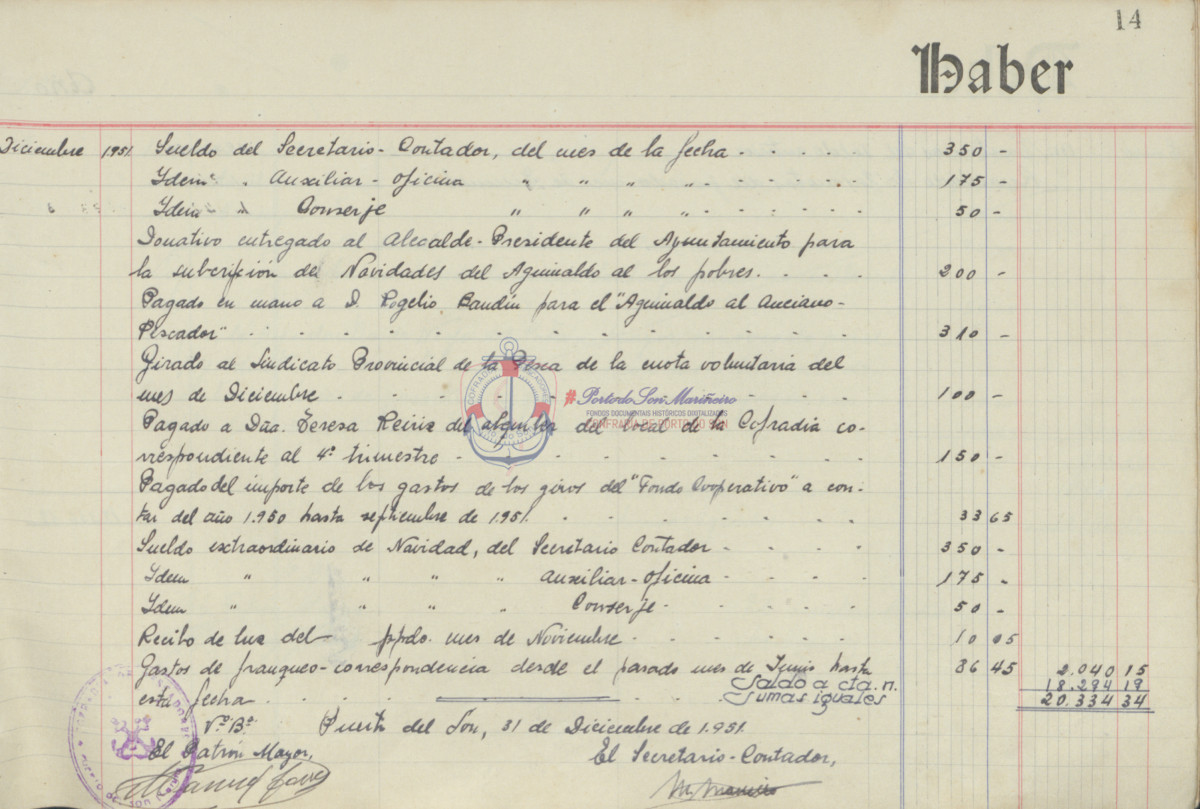 14
Haber
Diciembre 1951 Sueldo del Secretario-Contador, del mes de la fecha . . . . 350 -
Idem " Auxiliar-oficina " " " " . . . . 175 -
Idem " Conserje " " " " . . . . 50 -
Donativo entregado al Alcalde-Presidente del Ayuntamiento para
la subcripción de Navidades del Aguinaldo al los pobres. . . . 200 -
Pagado en mano a D. Rogelio Bandín para el "Aguinaldo al Anciano-
Pescador" . . . . 310 -
Girado al Sindicato Provincial de la Pesca de la cuota voluntaria del
mes de Diciembre . . . . 100 -
#PortodoSonMariñeiro
FONDOS DOCUMENTAIS HISTÓRICOS DIXITALIZADOS
CONFRARÍA DE PORTO DO SON
Pagado a Dña. Teresa Reiriz del alquiler del local de la Cofradía co-
rrespondiente al 4º trimestre . . . . 150 -
Pagado del importe de los gastos de los giros del "Fondo Cooperativo" a con-
tar del año 1.950 hasta septiembre de 1.951. . . . 33 65
Sueldo extraordinario de Navidad, del Secretario Contador . . . . 350 -
Idem " " " " Auxiliar-oficina . . . . 175 -
Idem " " " " Conserje . . . . 50 -
Recibo de luz del ppdo. mes de Noviembre . . . . 10 05
Gastos de franqueo-correspondencia desde el pasado mes de Junio hasta 86 45 2.040 15
esta fecha . . Saldo a cta. n. 18.294 19
Sumas iguales 20.334 34
Vº. Bº. Puerto del Son, 31 de Diciembre de 1.951.
El Patrón Mayor, El Secretario-Contador,